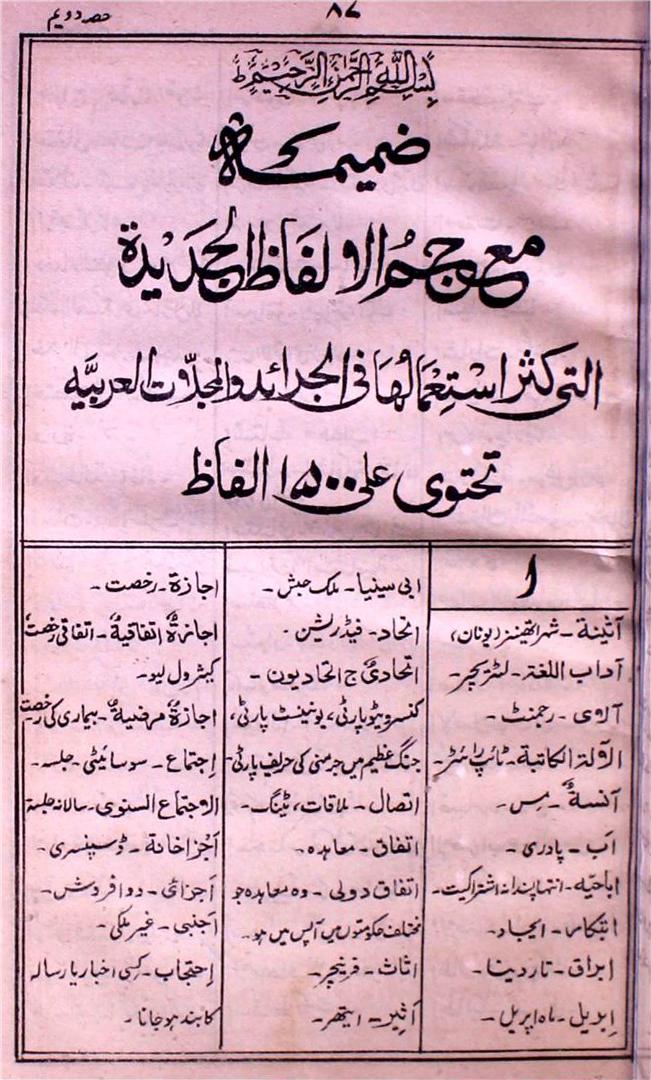 حصہ دویم
۸۷
بسم الله الرحمن الرحیم ط
ضمیمہ
معجم الالفاظ الجدیدة
التی کثر استعمالها فی الجرائد والمجلات العربیه
تحتوی علی ۱۵۰۰ الفاظ
ا
آثینة - شہر ایتھنز (یونان)
آداب اللغة - لٹریچر -
آلای - رجمنٹ -
الآلة الکاتبة - ٹائپ رائٹر -
آنسة - مِس -
اَب - پادری -
اباحیّه - انتہا پسندانہ اشتراکیت -
ابتکار - ایجاد -
ابراق - تار دینا -
اِبریل - ماہ اپریل -
ابی سینیا - ملک حبش -
اتحاد - فیڈریشن -
اتحادیٌ ج اتحادیون -
کنسرویٹو پارٹی، یونینسٹ پارٹی،
جنگ عظیم میں جرمنی کی حریف پارٹی -
اتصال - ملاقات، میٹنگ -
اتفاق - معاہدہ -
اتفاق دولی - وہ معاہدہ جو
مختلف حکومتوں میں آپس میں ہو -
اثاث - فرنیچر -
اَثیر - ایتھر -
اجازة - رخصت -
اجازةٌ اتفاقیةٌ - اتفاقی رخصت
کیثرول لیو -
اجازةٌ مرضیةٌ - بیماری کی رخصت
اِجتماع - سوسائیٹی - جلسہ -
الاجتماع السنوی - سالانہ جلسہ
اَجزاخانة - ڈسپنسری -
اَجزائی - دوا فروش -
اَجنبی - غیر ملکی -
اِحتجاب - کسی اخبار یا رسالہ
کا بند ہو جانا -